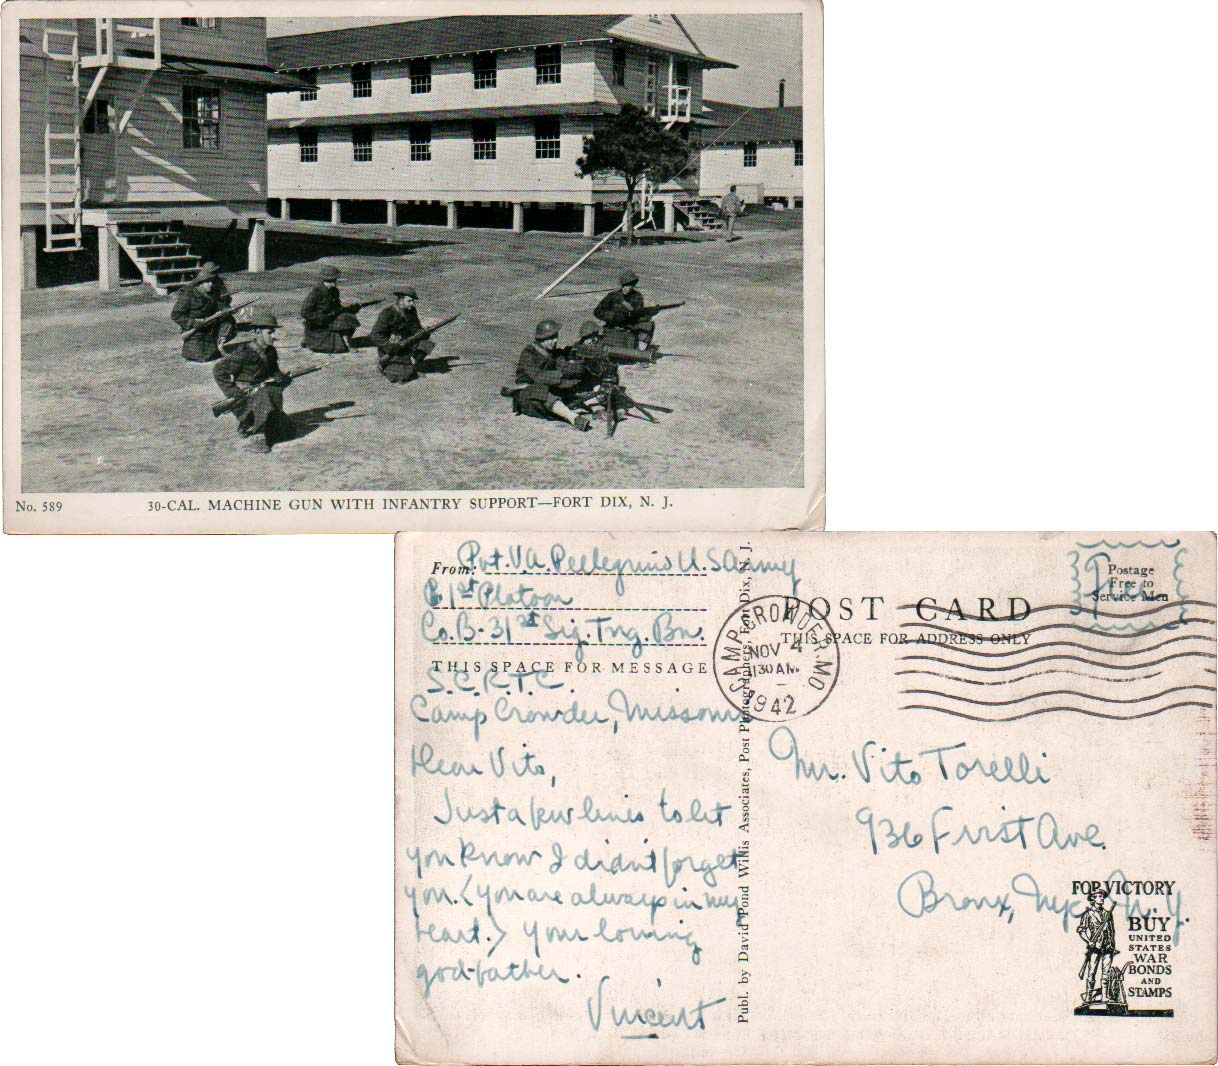 No. 589
30-CAL. MACHINE GUN WITH INFANTRY SUPPORT—FORT DIX, N. J.
From: Pvt. V.A. Pellegrino U.S Army
1st Platoon
Co. B-31st Sig. Tng. Bn.
THIS SPACE FOR MESSAGE
S.C.R.T.C.
Camp Crowder, Missouri
Dear Vito,
Just a few lines to let
you know I didn't forget
you. (you are always in my
heart.) Your loving
god-father.
Vincent
Publ. by David Pond Willis Associates, Post Photographers, Fort Dix, N. J.
CAMP CROWDER, MO.
NOV 4
1130 AM
1942
POST CARD
THIS SPACE FOR ADDRESS ONLY
Free
Postage
Free to
Service Men
Mr. Vito Torelli
936 First Ave.
Bronx, Nyc N.Y.
FOR VICTORY
BUY
UNITED
STATES
WAR
BONDS
AND
STAMPS